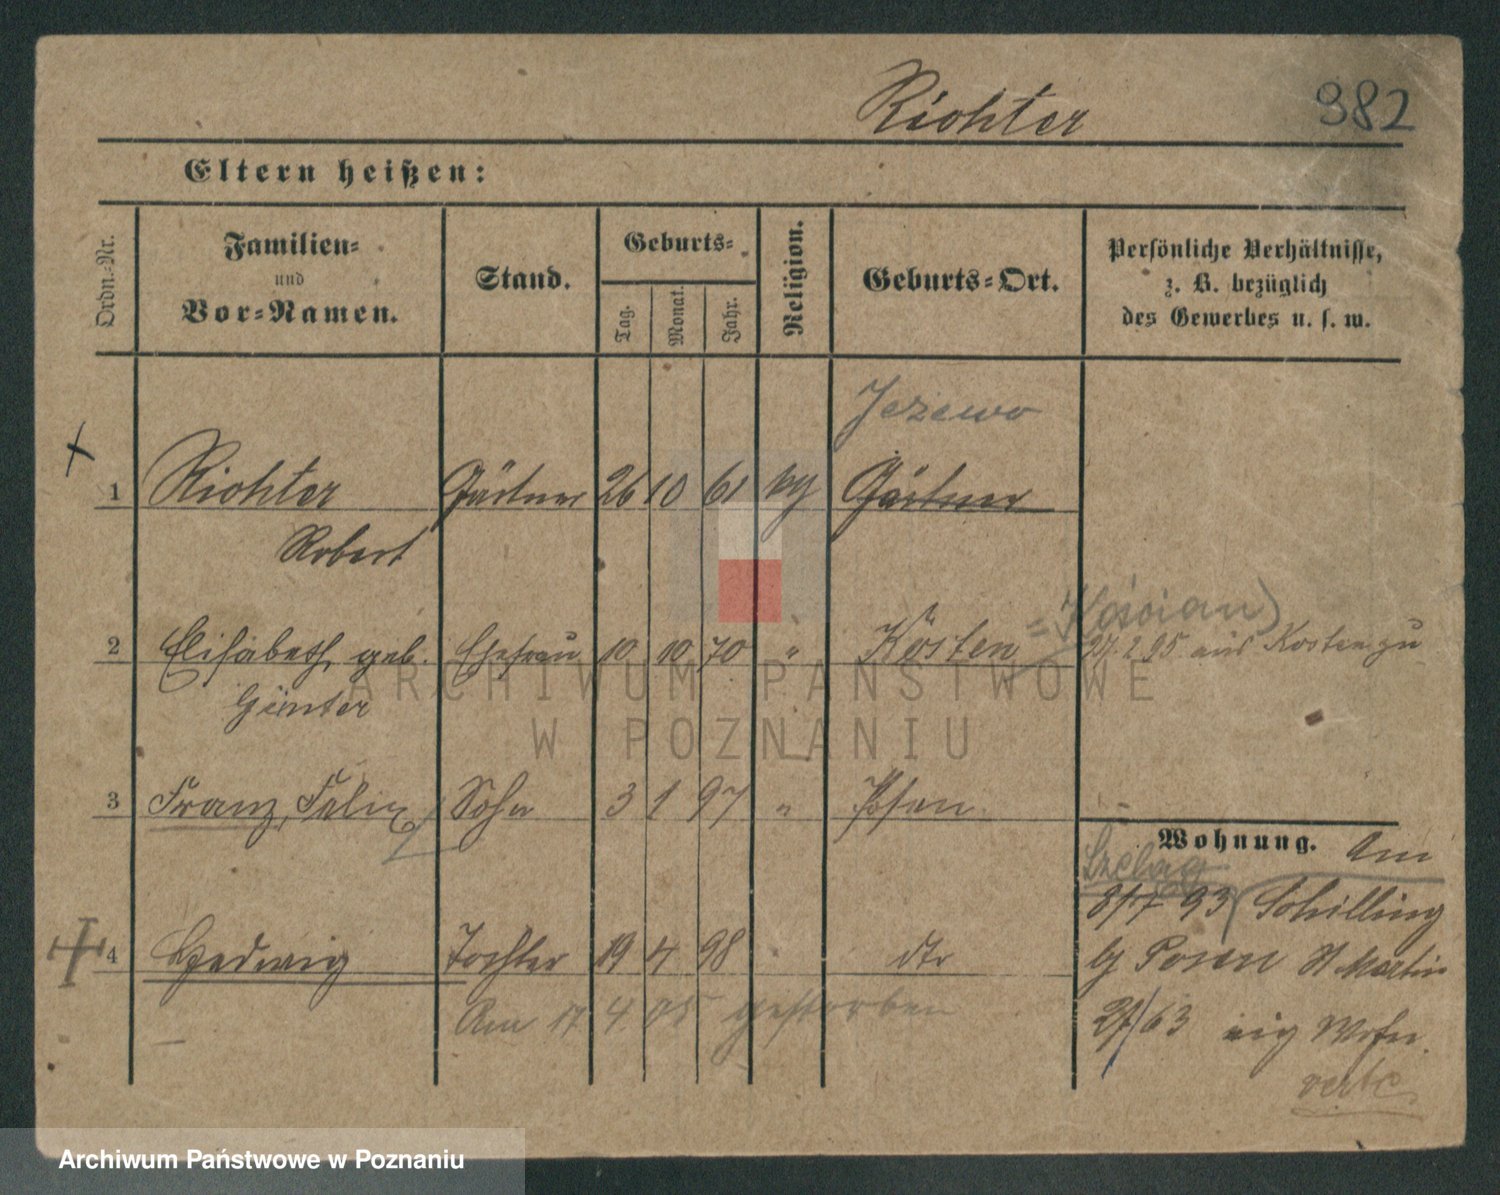 Richter 382
Eltern heißen:
Ordn.-Nr. Familien- und Vor-Namen. Stand. Geburts- Tag. Monat. Jahr. Religion. Geburts-Ort. Persönliche Verhältnisse, z. B. bezüglich des Gewerbes u. s. w.
Jezewo
1 Richter Gärtner 26 10 61 kg Gärtner
Robert
= Kościan)
2 Elisabeth geb. Ehefrau 10 10 70 " Kosten 27. 2 95 aus Kosten zu
Günter
3 Franz, Felix Sohn 3 1 97 " Posen.
Wohnung. Am
Szeląg
8/7 93 Schilling
4 Hedwig Tochter 19 4 98 dto
by Posen St Martin
Am 17 4 05 gestorben
27/63 Wohn.
verte.
ARCHIWUM PAŃSTWOWE
W POZNANIU
Archiwum Państwowe w Poznaniu